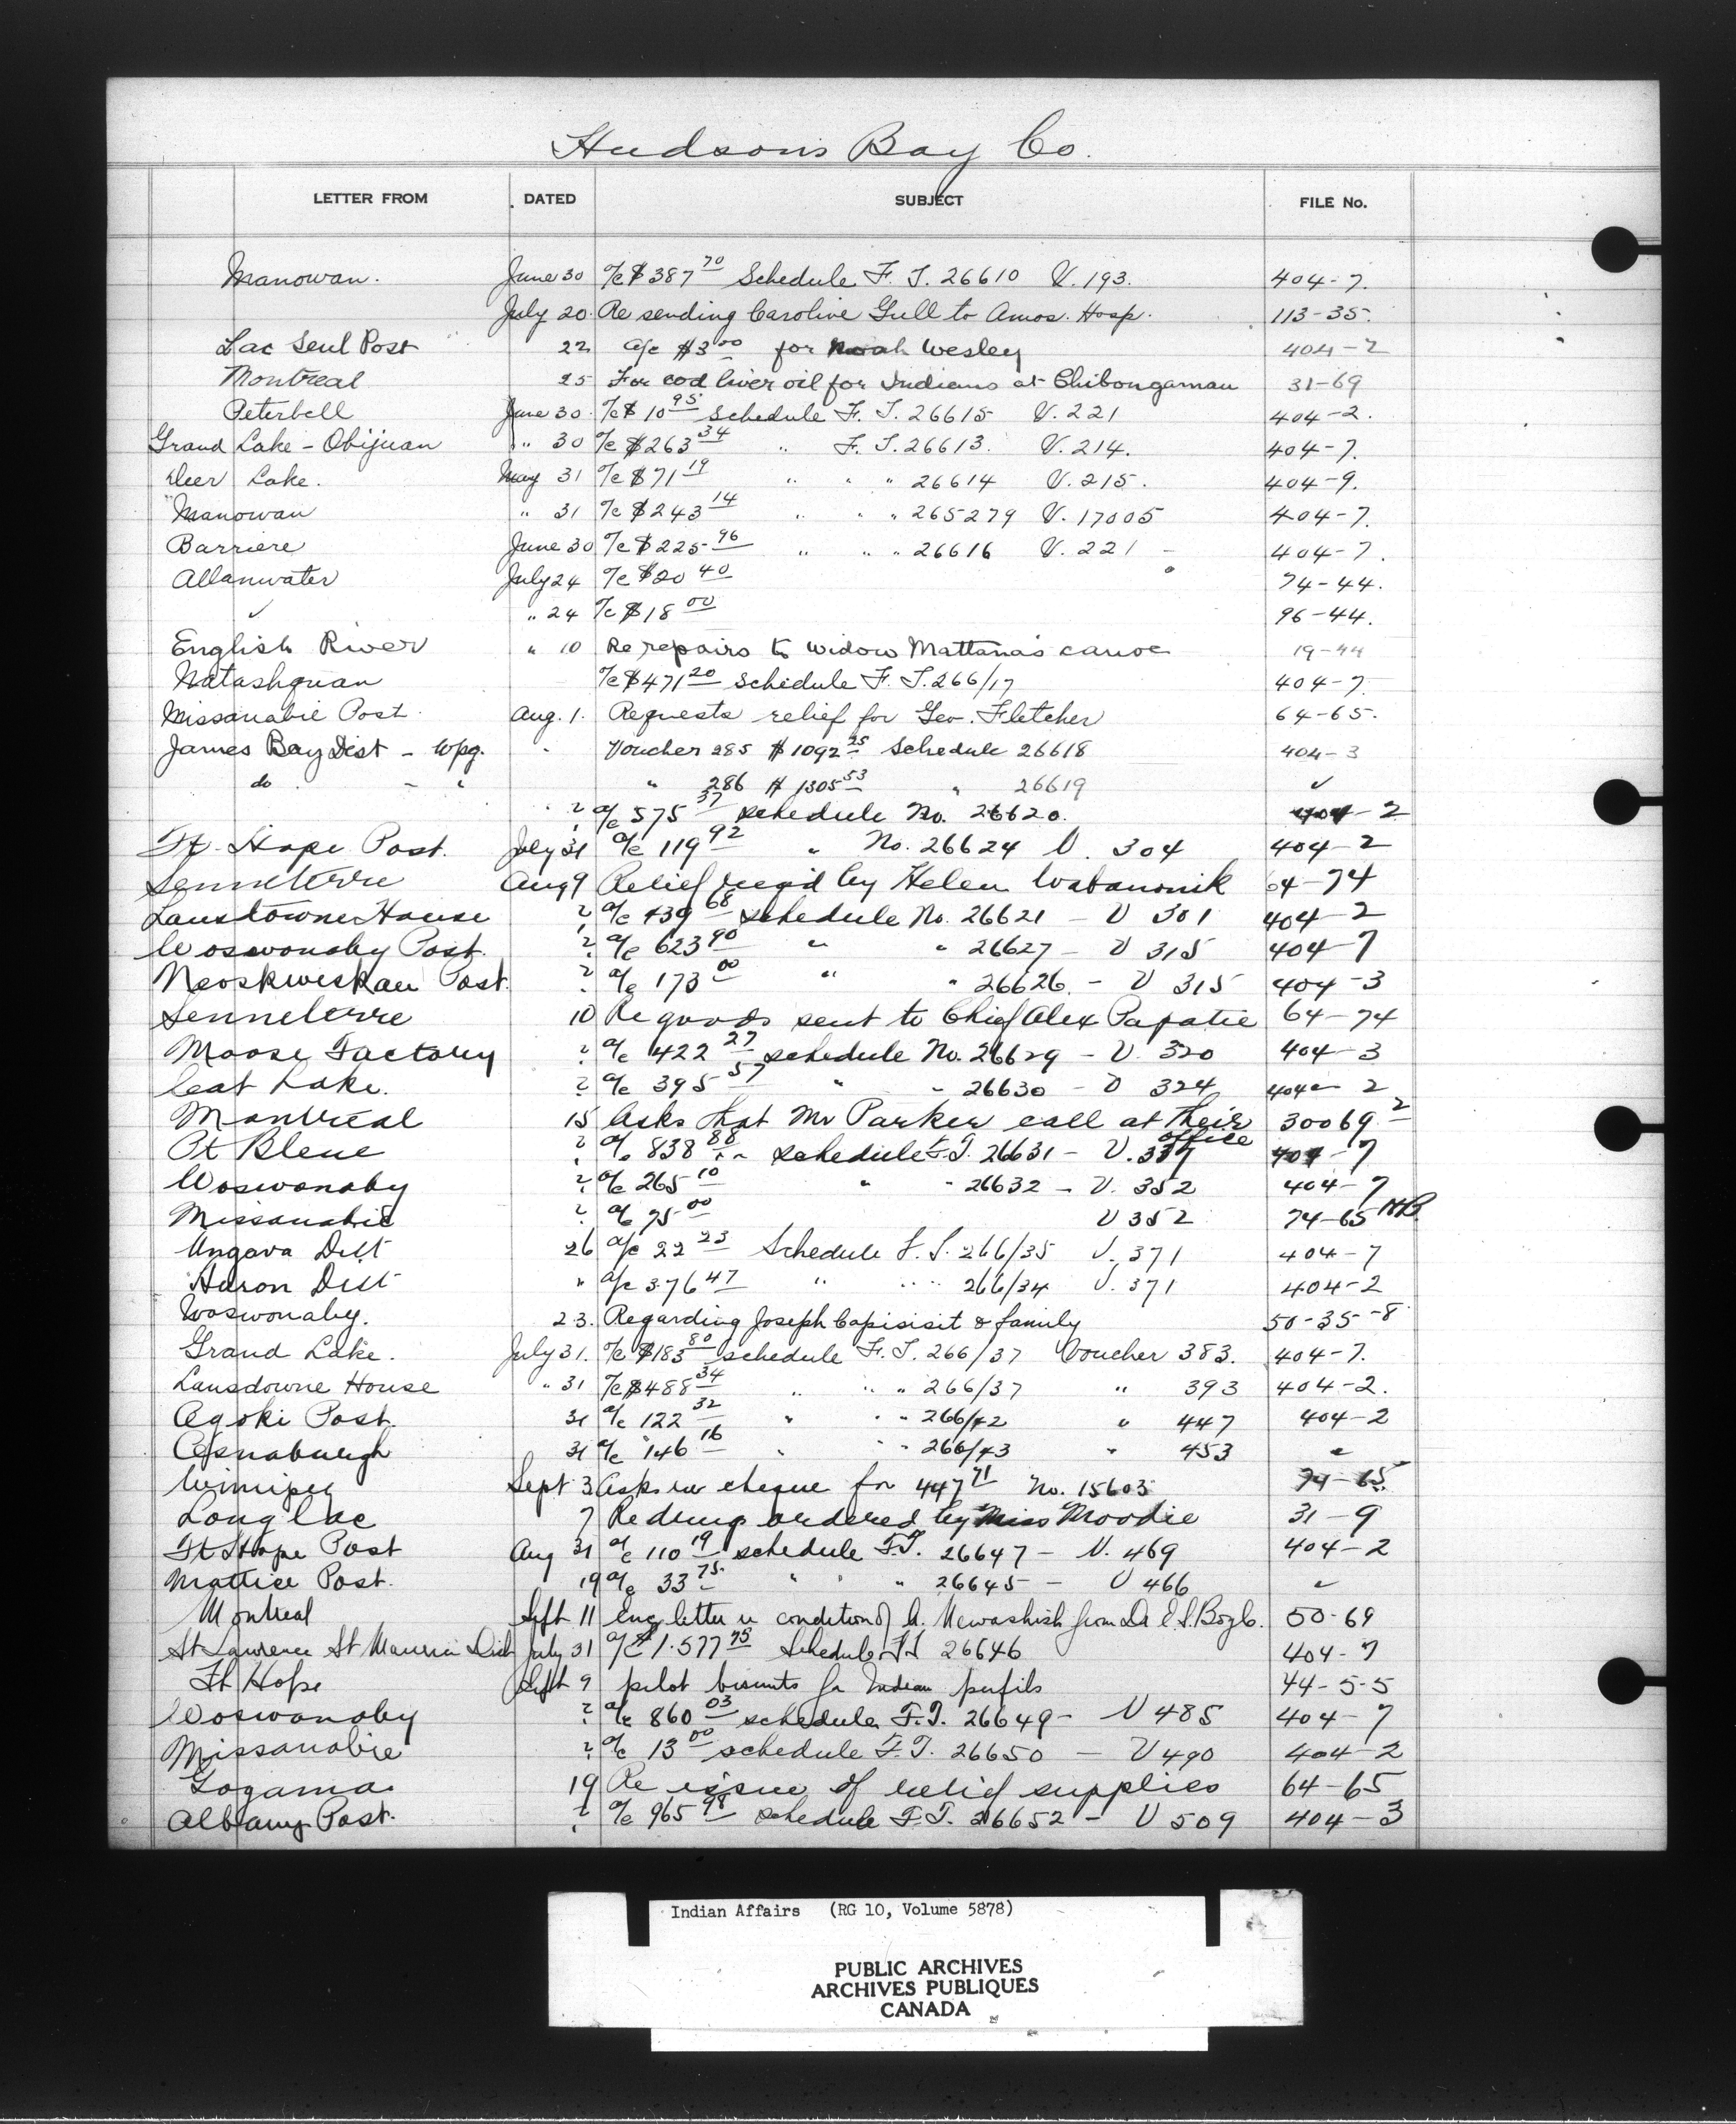 Hudson's Bay Co.
LETTER FROM DATED SUBJECT FILE No.
Manowan. June 30 a/c $387 70 Schedule F. T. 26610 V. 193. 404-7.
July 20. Re sending Caroline Gull to Amos. Hosp. 113-35.
Lac Seul Post 22 a/c $3 00 for Noah Wesley 404-2
Montreal 25 For cod liver oil for Indians at Chibougamau 31-69
Peterbell June 30. a/c $10 95 schedule F. T. 26615 V. 221 404-2.
Grand Lake - Obijuan " 30 a/c $263 34 " F. T. 26613. V. 214. 404-7.
Deer Lake. May 31 a/c $71 19 " " " 26614 V. 215. 404-9.
Manowan " 31 a/c $243 14 " " " 265279 V. 17005 404-7.
Barriere June 30 a/c $225 96 " " " 26616 V. 221 - 404-7.
Allanwater July 24 a/c $20 40 74-44.
✓ " 24 a/c $18 00 96-44.
English River " 10 Re repairs to widow Mattanas canoe 19-44
Natashquan a/c $471 20 schedule F. T. 266/17 404-7.
Missanabie Post Aug. 1. Requests relief for Geo. Fletcher 64-65.
James Bay Dist - Wpg. " Voucher 285 $1092 25 Schedule 26618 404-3
do - " " 286 $1305 53 " 26619 ✓
? a/c 575 37 schedule No. 26620. 404-2
Ft. Hope Post. July 31 a/c 119 92 " No. 26624 V. 304 404-2
Senneterre Aug 9 Relief req'd by Helen Wabanonik 64-74
Lansdowne House ? a/c 439 68 schedule No. 26621 - V 301 404-2
Woswonaby Post. ? a/c 623 90 " " 26627 - V 315 404-7
Neoskweskau Post. ? a/c 173 00 " " 26626. - V 315 404-3
Senneterre 10 Re goods sent to Chief Alex Papatie 64-74
Moose Factory ? a/c 422 27 schedule No. 26629 - V. 320 404-3
Cat Lake. ? a/c 395 57 " " 26630 - V 324 404-2
Montreal 15 Asks that Mr Parker call at their office 30069-2
Pt Bleue ? a/c 838 88 schedule F.T. 26631 - V. 337 404-7
Woswonaby ? a/c 265 10 " " 26632 - V. 352 404-7
Missanabie ? a/c 75 00 V 352 74-65
Ungava Dist 26 a/c 22 23 Schedule F.T. 266/35 V. 371 404-7
Huron Dist " a/c 376 47 " " " 266/34 V. 371 404-2
Woswonaby. 23. Regarding Joseph Capisisit & family 50-35-8
Grand Lake. July 31. a/c $183 80 schedule F. T. 266/37 Voucher 383. 404-7.
Lansdowne House " 31 a/c $488 34 " " " 266/37 " 393 404-2.
Agoki Post. 31 a/c 122 32 " " " 266/42 " 447 404-2
Osnaburgh 31 a/c 146 16 " " " 266/43 " 453 "
Winnipeg Sept 3 Asks re cheque for 447 71 No. 15603 74-65
Longlac 7 Re drugs ordered by Miss Moodie 31-9
Ft Hope Post Aug 31 a/c 110 19 schedule F.T. 26647 - V. 469 404-2
Mattice Post. 19 a/c 33 75 " " " 26645 - V 466 "
Montreal Sept 11 Enc letter re condition of A. Newashish from Dr E.S. 50-69
St Lawrence St Maurice Dist July 31 a/c $1.577 75 Schedule FT 26646 404-7
Ft Hope Sept 9 pilot biscuits for Indian pupils 44-5-5
Woswonaby ? a/c 860 03 schedule F.T. 26649 - V 485 404-7
Missanabie ? a/c 13 00 schedule F.T. 26650 - V 490 404-2
Gogama 19 Re issue of relief supplies 64-65
Albany Post. ? a/c 965 98 schedule F.T. 26652 - V 509 404-3
Indian Affairs (RG 10, Volume 5878)
PUBLIC ARCHIVES
ARCHIVES PUBLIQUES
CANADA